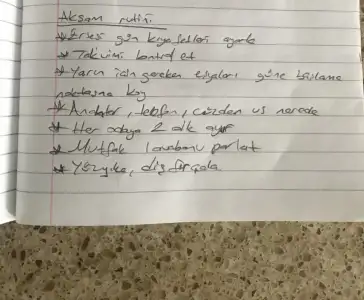 Akşam rutini
* Ertesi gün kıyafetleri ayarla
* Takvimi kontrol et
* Yarın için gereken eşyaları güne başlama
noktasına koy
* Anahtar, telefon, cüzdan vs nerede
* Her odaya 2 dk ayır
* Mutfak lavabonu parlat
* Yüz yıka, diş fırçala